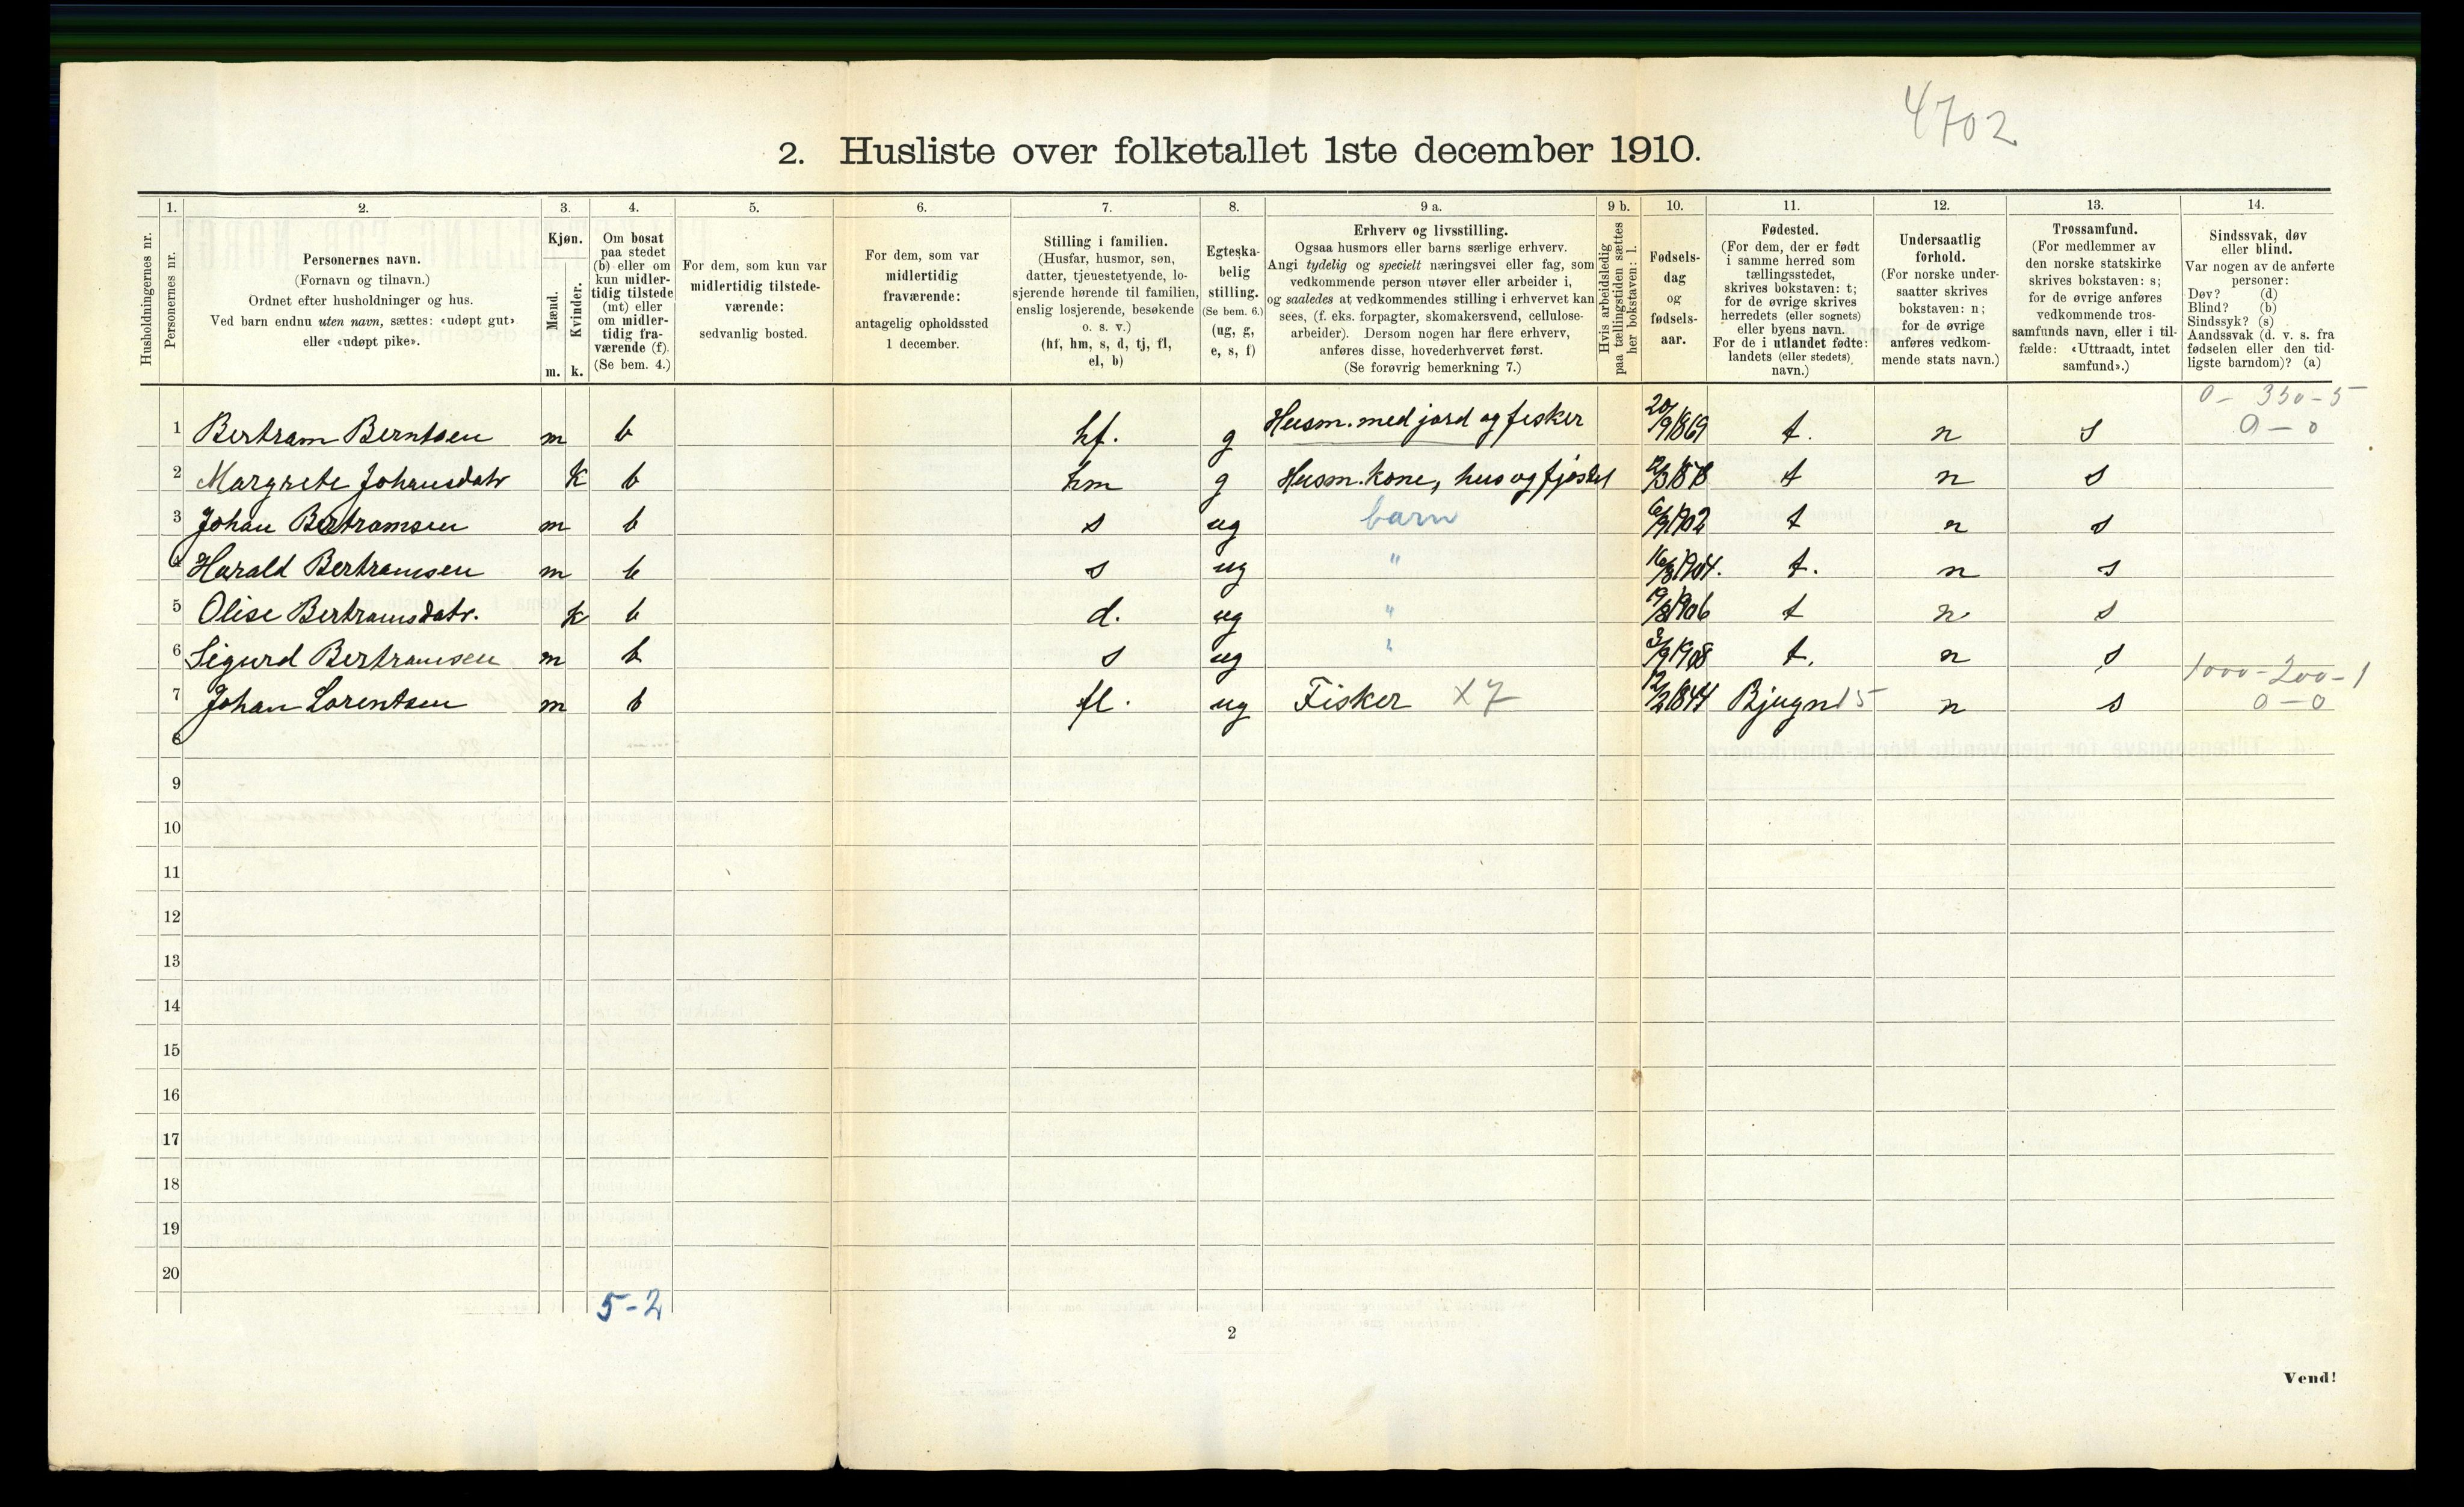 4702
2. Husliste over folketallet 1ste december 1910.
1. 2. 3. 4. 5. 6. 7. 8. 9 a. 9 b. 10. 11. 12. 13. 14.
Husholdningernes nr.
Personernes nr.
Personernes navn.
(Fornavn og tilnavn.)
Ordnet efter husholdninger og hus.
Ved barn endnu uten navn, sættes: «udøpt gut»
eller «udøpt pike».
Kjøn.
Mænd.
Kvinder.
m. k.
Om bosat
paa stedet
(b) eller om
kun midler-
tidig tilstede
(mt) eller
om midler-
tidig fra-
værende (f).
(Se bem. 4.)
For dem, som kun var
midlertidig tilstede-
værende:
sedvanlig bosted.
For dem, som var
midlertidig
fraværende:
antagelig opholdssted
1 december.
Stilling i familien.
(Husfar, husmor, søn,
datter, tjenestetyende, lo-
sjerende hørende til familien,
enslig losjerende, besøkende
o. s. v.)
(hf, hm, s, d, tj, fl,
el, b)
Egteska-
belig
stilling.
(Se bem. 6.)
(ug, g,
e, s, f)
Erhverv og livsstilling.
Ogsaa husmors eller barns særlige erhverv.
Angi tydelig og specielt næringsvei eller fag, som
vedkommende person utøver eller arbeider i,
og saaledes at vedkommendes stilling i erhvervet kan
sees, (f. eks. forpagter, skomakersvend, cellulose-
arbeider). Dersom nogen har flere erhverv,
anføres disse, hovederhvervet først.
(Se forøvrig bemerkning 7.)
Hvis arbeidsledig
paa tællingstiden sættes
her bokstaven: l.
Fødsels-
dag
og
fødsels-
aar.
Fødested.
(For dem, der er født
i samme herred som
tællingsstedet,
skrives bokstaven: t;
for de øvrige skrives
herredets (eller sognets)
eller byens navn.
For de i utlandet fødte:
landets (eller stedets)
navn.)
Undersaatlig
forhold.
(For norske under-
saatter skrives
bokstaven: n;
for de øvrige
anføres vedkom-
mende stats navn.)
Trossamfund.
(For medlemmer av
den norske statskirke
skrives bokstaven: s;
for de øvrige anføres
vedkommende tros-
samfunds navn, eller i til-
fælde: «Uttraadt, intet
samfund».)
Sindssvak, døv
eller blind.
Var nogen av de anførte
personer:
Døv? (d)
Blind? (b)
Sindssyk? (s)
Aandssvak (d. v. s. fra
fødselen eller den tid-
ligste barndom)? (a)
0 - 350 - 5
1 Bertram Berntsen m b hf. g Husm. med jord og fisker 20/9 1869 t. n s 0 - 0
2 Margrete Johansdatr k b hm g Husm. kone, hus og fjøstel t n s
3 Johan Bertramsen m b s ug barn 6/9 1902 t n s
4 Harald Bertramsen m b s ug " t. n s
5 Olise Bertramsdatr. k b d. ug " 19/8 1906 t n s
6 Sigurd Bertramsen m b s ug " 3/9 1908 t. n s
1000 - 200 - 1
7 Johan Lorentsen m b fl. ug Fisker X7 12/2 1844 Bjugn 15 n s 0 - 0
8
9
10
11
12
13
14
15
16
17
18
19
20
5-2
2
Vend!